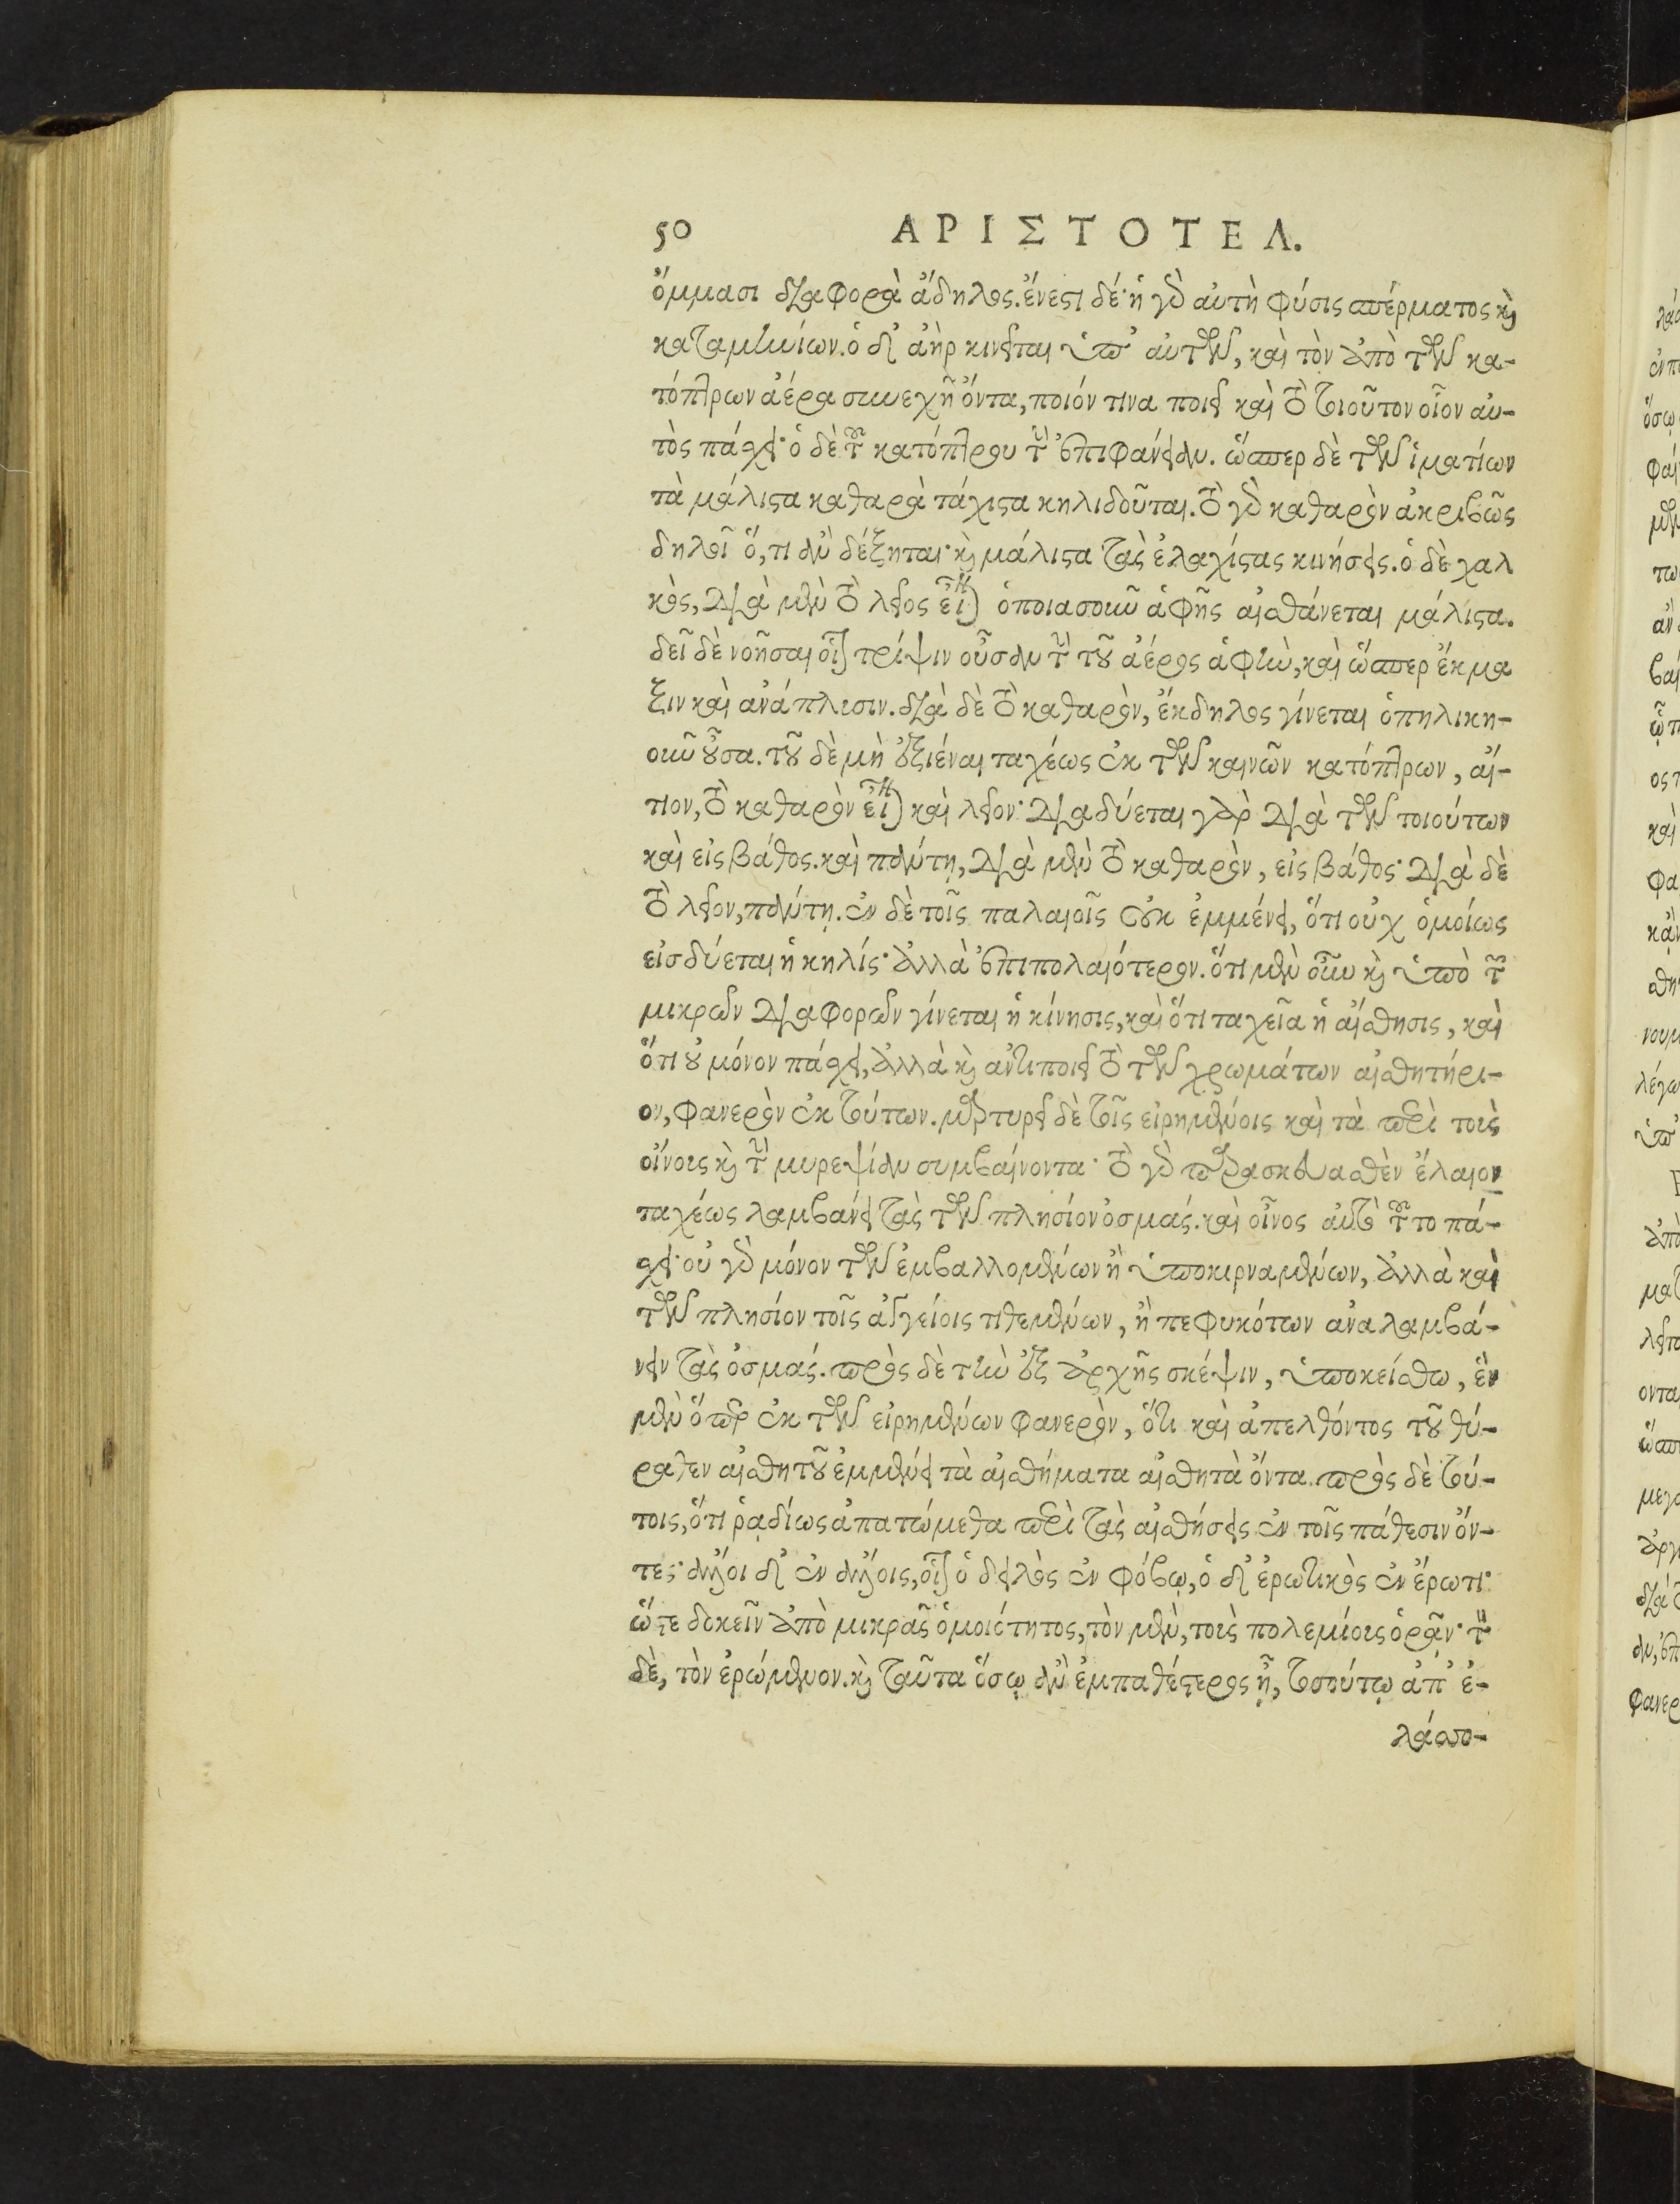 50 ΑΡΙΣΤΟΤΕΛ.
ὄμμασι διαφορὰ ἄδηλος. ἔνεστι δέ· ἡ γὰρ αὐτὴ φύσις σπέρματος καὶ
καταμηνίων. ὁ δ' ἀὴρ κινεῖται ὑπ' αὐτῶν, καὶ τὸν ἀπὸ τῶν κα-
τόπτρων ἀέρα συνεχῆ ὄντα, ποιόν τινα ποιεῖ καὶ τὸ τοιοῦτον οἷον αὐ-
τὸς πάσχει· ὁ δὲ τοῦ κατόπτρου τὴν ἐπιφάνειαν. ὥσπερ δὲ τῶν ἱματίων
τὰ μάλιστα καθαρὰ τάχιστα κηλιδοῦται. τὸ γὰρ καθαρὸν ἀκριβῶς
δηλοῖ ὅ, τι ἂν δέξηται· καὶ μάλιστα τὰς ἐλαχίστας κινήσεις. ὁ δὲ χαλ
κὸς, διὰ μὲν τὸ λεῖος εἶναι ὁποιασοῦν ἁφῆς αἰσθάνεται μάλιστα.
δεῖ δὲ νοῆσαι οἷον τρίψιν οὖσαν τὴν τοῦ ἀέρος ἁφὴν, καὶ ὥσπερ ἔκμα
ξιν καὶ ἀνάπλυσιν. διὰ δὲ τὸ καθαρὸν, ἔκδηλος γίνεται ὁπηλικη-
οῦν οὖσα. τοῦ δὲ μὴ ἐξιέναι ταχέως ἐκ τῶν καινῶν κατόπτρων, αἴ-
τιον, τὸ καθαρὸν εἶναι καὶ λεῖον· διαδύεται γὰρ διὰ τῶν τοιούτων
καὶ εἰς βάθος. καὶ πάντῃ, διὰ μὲν τὸ καθαρὸν, εἰς βάθος· διὰ δὲ
τὸ λεῖον, πάντῃ. ἐν δὲ τοῖς παλαιοῖς οὐκ ἐμμένει, ὅτι οὐχ ὁμοίως
εἰσδύεται ἡ κηλίς· ἀλλὰ ἐπιπολαιότερον. ὅτι μὲν οὖν καὶ ὑπὸ τῶν
μικρῶν διαφορῶν γίνεται ἡ κίνησις, καὶ ὅτι ταχεῖα ἡ αἴσθησις, καὶ
ὅτι οὐ μόνον πάσχει, ἀλλὰ καὶ ἀντιποιεῖ τὸ τῶν χρωμάτων αἰσθητήρι-
ον, φανερὸν ἐκ τούτων. μαρτυρεῖ δὲ τοῖς εἰρημένοις καὶ τὰ περὶ τοὺς
οἴνους καὶ τὴν μυρεψίαν συμβαίνοντα· τὸ γὰρ παρασκευασθὲν ἔλαιον
ταχέως λαμβάνει τὰς τῶν πλησίον ὀσμάς. καὶ οἶνος αὐτὸ τοῦτο πά-
σχει· οὐ γὰρ μόνον τῶν ἐμβαλλομένων ἢ ὑποκιρναμένων, ἀλλὰ καὶ
τῶν πλησίον τοῖς ἀγγείοις τιθεμένων, ἢ πεφυκότων ἀναλαμβά-
νειν τὰς ὀσμάς. πρὸς δὲ τὴν ἐξ ἀρχῆς σκέψιν, ὑποκείσθω, ἓν
μὲν ὅπερ ἐκ τῶν εἰρημένων φανερὸν, ὅτι καὶ ἀπελθόντος τοῦ θύ-
ραθεν αἰσθητοῦ ἐμμένει τὰ αἰσθήματα αἰσθητὰ ὄντα. πρὸς δὲ τού-
τοις, ὅτι ῥᾳδίως ἀπατώμεθα περὶ τὰς αἰσθήσεις ἐν τοῖς πάθεσιν ὄν-
τες· ἄλλοι δ' ἐν ἄλλοις, οἷον ὁ δειλὸς ἐν φόβῳ, ὁ δ' ἐρωτικὸς ἐν ἔρωτι·
ὥστε δοκεῖν ἀπὸ μικρᾶς ὁμοιότητος, τὸν μὲν, τοὺς πολεμίους ὁρᾶν· τὸν
δὲ, τὸν ἐρώμενον. καὶ ταῦτα ὅσῳ ἂν ἐμπαθέστερος ᾖ, τοσούτῳ ἀπ' ἐ-
λάσσο-